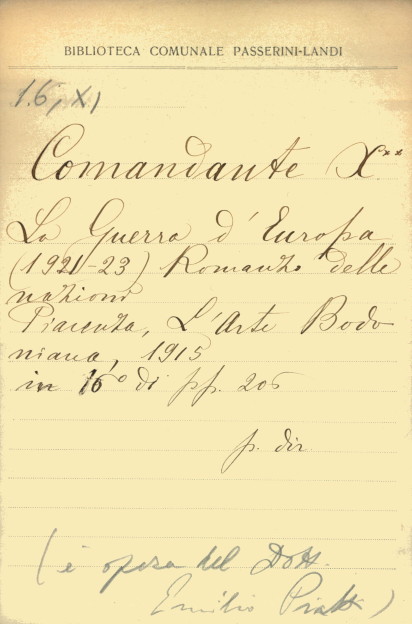 BIBLIOTECA COMUNALE PASSERINI-LANDI
1.6, XI
Comandante X**
La Guerra d'Europa
(1921-23) Romanzo delle
nazioni
Piacenza, L'Arte Bodo
niana, 1915
in 16º di pp. 206
p. dir.
(è opera del Dott.
Emilio Piatti)